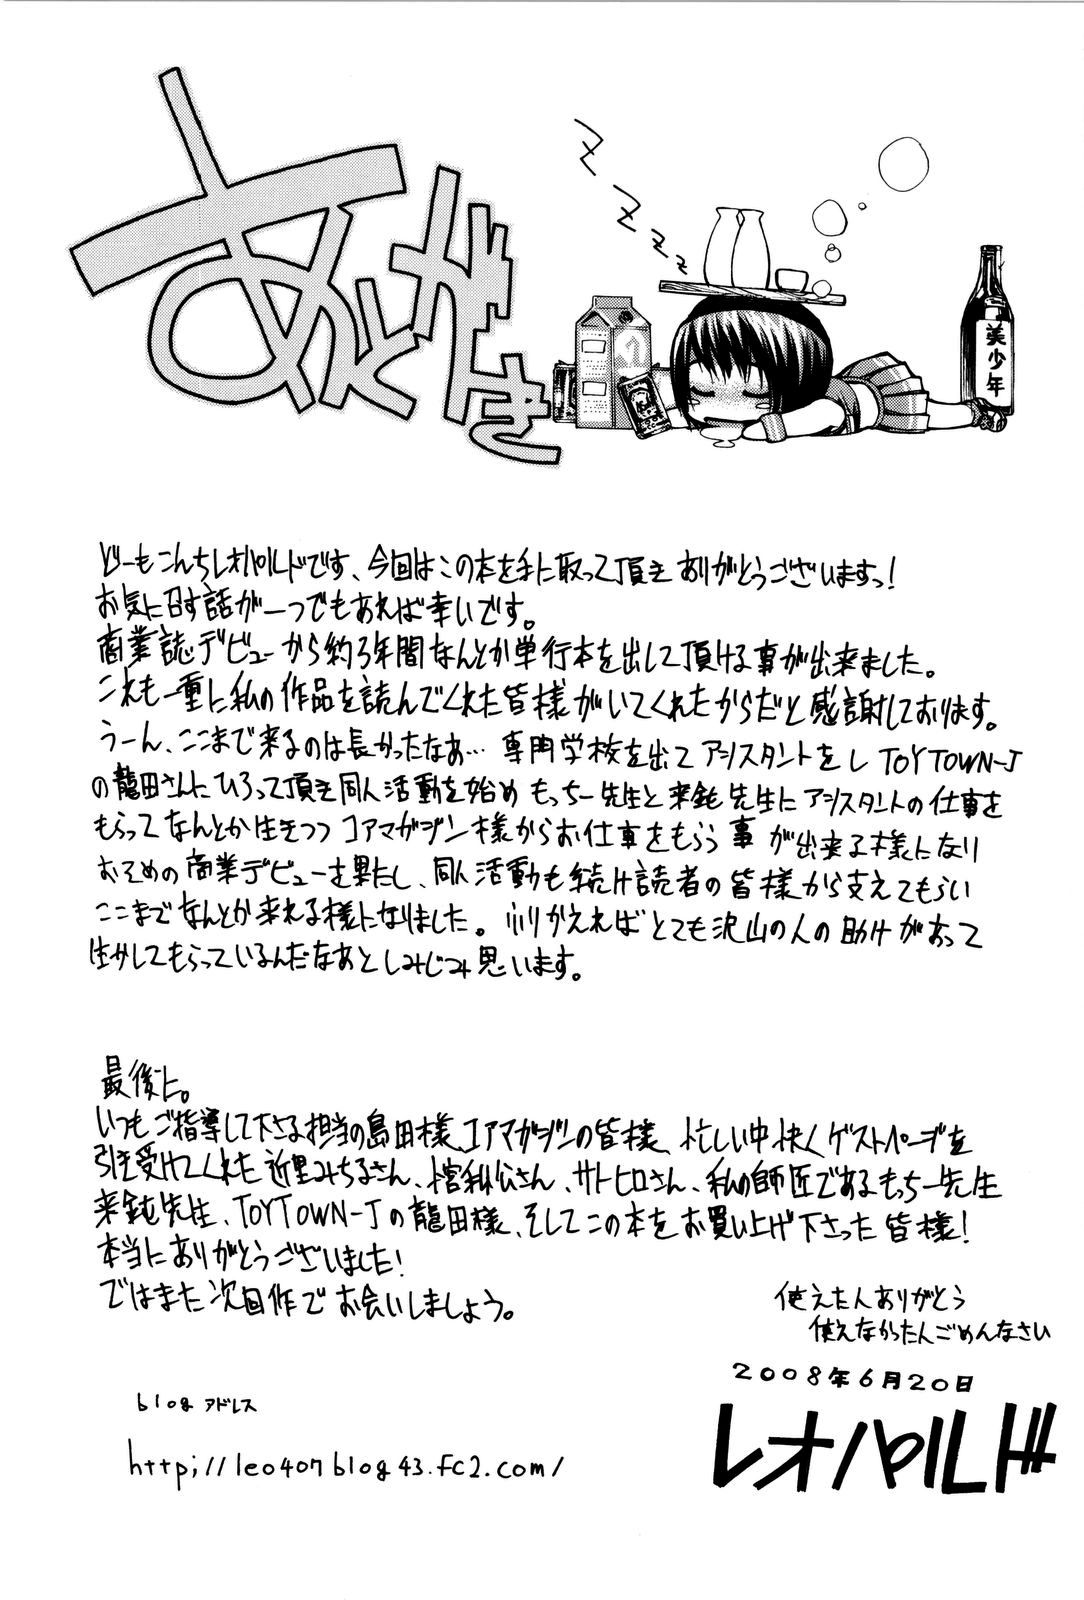 あとがき
zzzzz
美少年
どーもこんちレオパルドです、今回はこの本を手に取って頂きありがとうございますっ!
お気に召す話が一つでもあれば幸いです。
商業誌デビューから約3年間なんとか単行本を出して頂ける事が出来ました。
これも一重に私の作品を読んでくれた皆様がいてくれたからだと感謝しております。
うーん、ここまで来るのは長かったなぁ… 専門学校を出てアシスタントをし TOYTOWN-J
の龍田さんにひろって頂き同人活動を始め もっちー先生と来鈍先生にアシスタントの仕事を
もらってなんとか生きつつ コアマガジン様からお仕事をもらう事が出来る様になり
おそめの商業デビューを果たし、同人活動も続け読者の皆様から支えてもらい
ここまでなんとか来れる様になりました。ふりかえればとても沢山の人の助けがあって
生かしてもらっているんだなあとしみじみ思います。
最後に。
いつもご指導して下さる担当の島田様、コアマガジンの皆様、忙しい中快くゲストページを
引き受けてくれた近里みちるさん、サトヒロさん、私の師匠であるもっちー先生
来鈍先生、TOYTOWN-Jの龍田様、そしてこの本をお買い上げ下さった皆様!
本当にありがとうございました!
ではまた次回作でお会いしましょう。
使えた人ありがとう
使えなかった人ごめんなさい
2008年6月20日
レオパルド
blog アドレス
http;//leo407blog43.fc2.com/